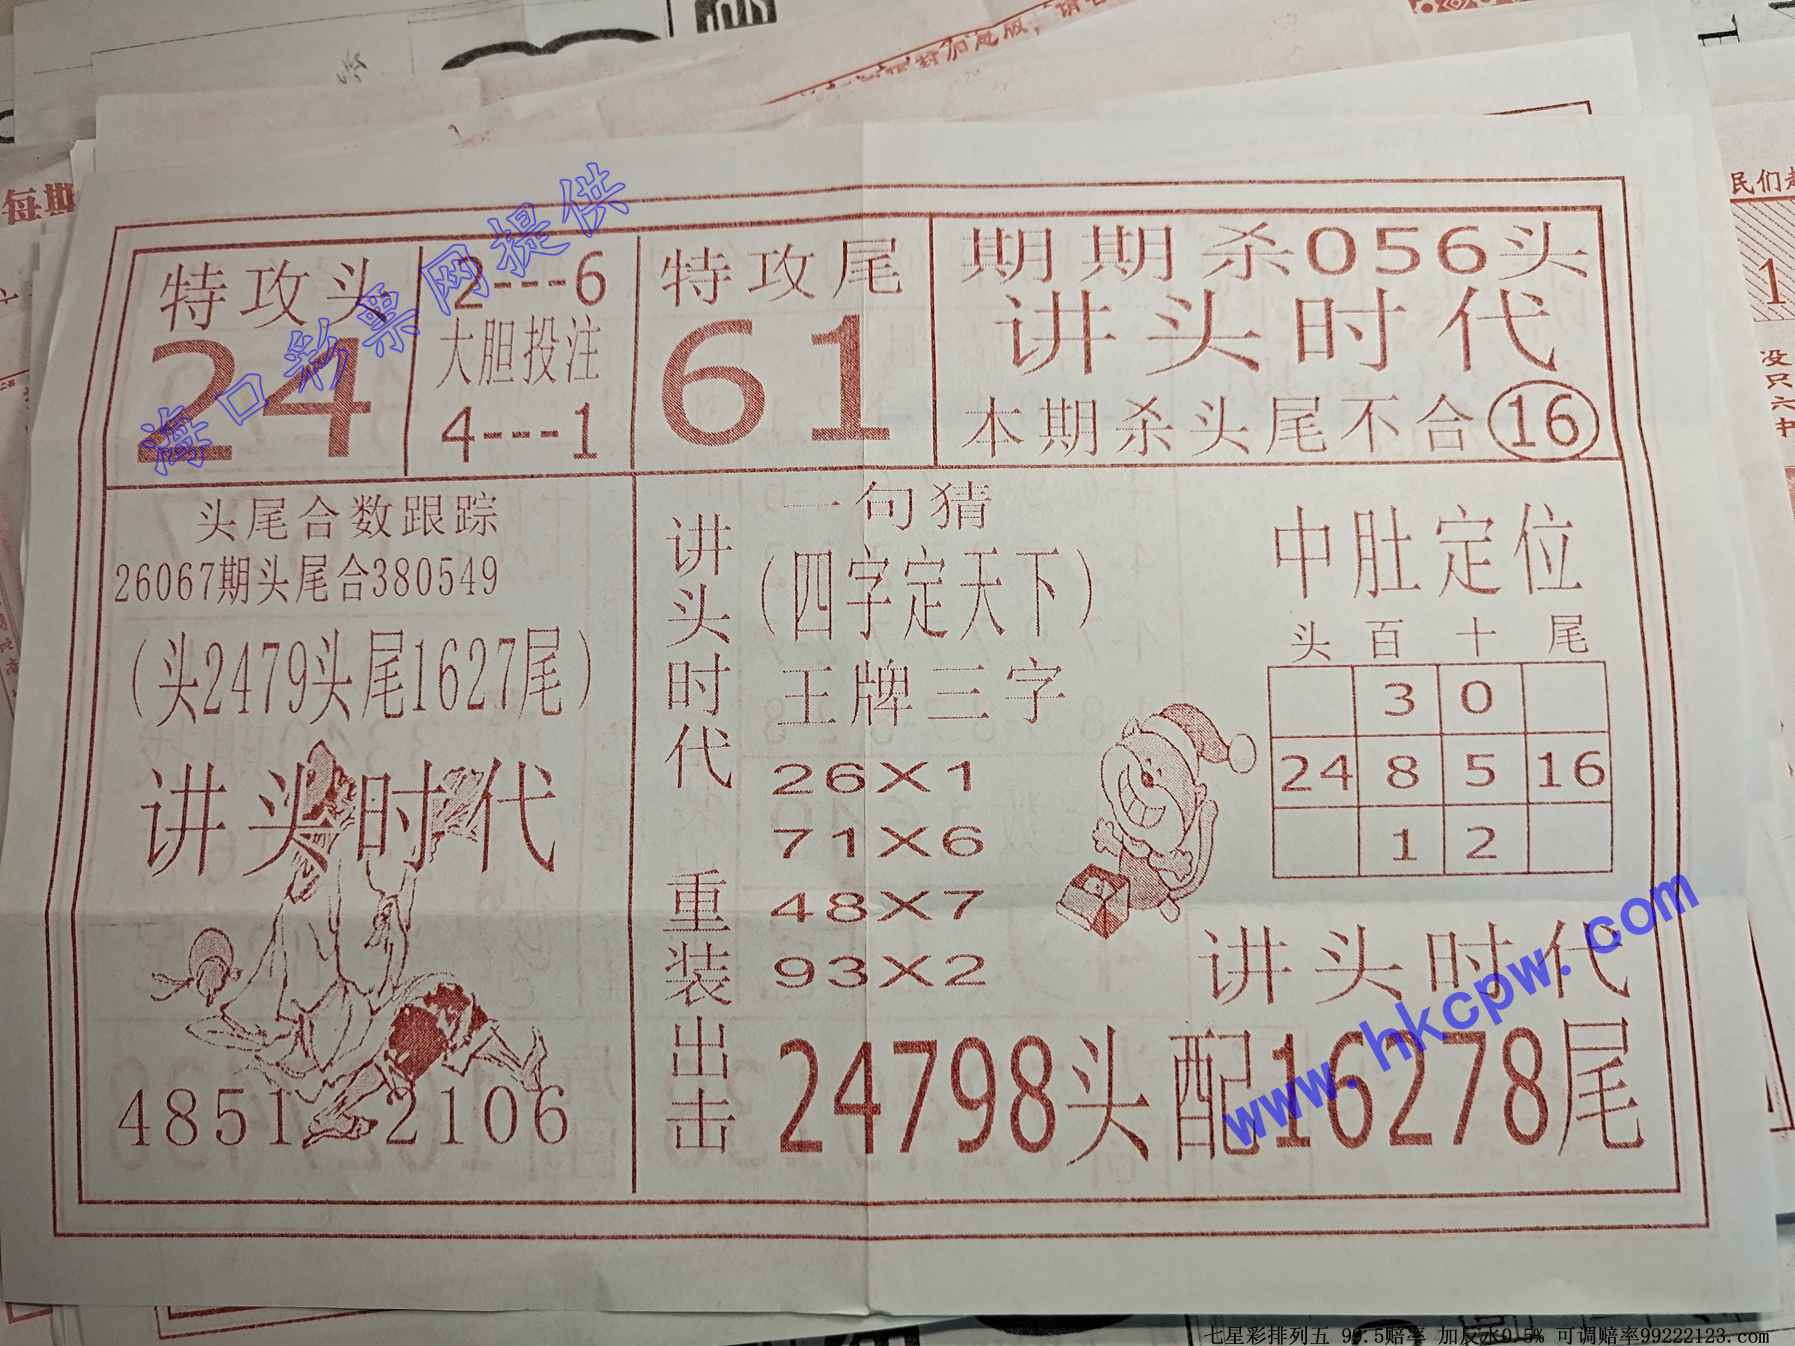 每期
民们
1
特攻头
24
2---6
大胆投注
4---1
特攻尾
61
期期杀056头
讲头时代
本期杀头尾不合16
头尾合数跟踪
26067期头尾合380549
(头2479头尾1627尾)
讲头时代
4851 2106
讲头时代
重装出击
一句猜
(四字定天下)
王牌三字
26X1
71X6
48X7
93X2
中肚定位
头 百 十 尾
3 0
24 8 5 16
1 2
讲头时代
24798头配16278尾
海口彩票网提供
www.hkcpw.com
七星彩排列五 99.5赔率 加反水0.5% 可调赔率99222123.com